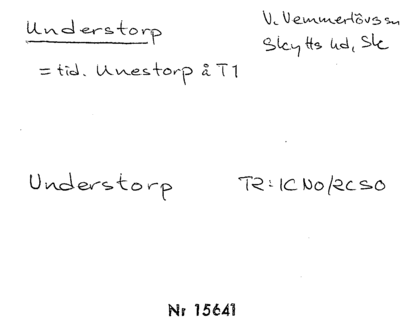 Understorp
V. Vemmerlövs sn
Skytts hd, Sk
= tid. Unestorp å T1
Understorp
T2: 1C NO/2C SO
Nr 15641